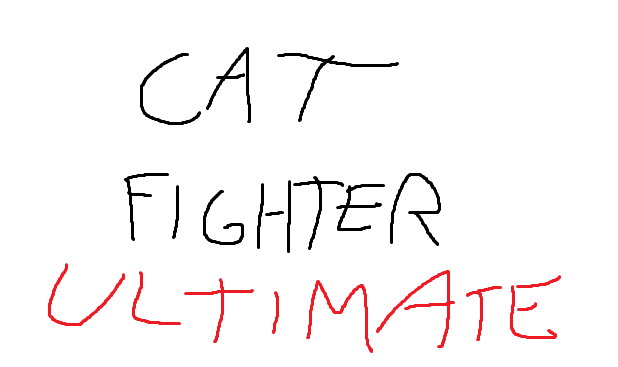 CAT
FIGHTER
ULTIMATE